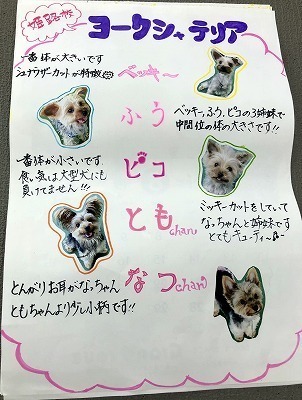 姫路校
ヨークシャテリア
一番体が大きいです
シュナウザーカットが特徴
ベッキー
ふう
ベッキー,ふう,ピコの3姉妹で
中間位の体の大きさです!!
一番体が小さいです
食い気は大型犬にも
負けてません!!!
ピコ
ともchan
ミッキーカットをしていて
なっちゃんと姉妹です
とてもキューティ〜
とんがりお耳がなっちゃん
ともちゃんより少し小柄です!!
なつchan